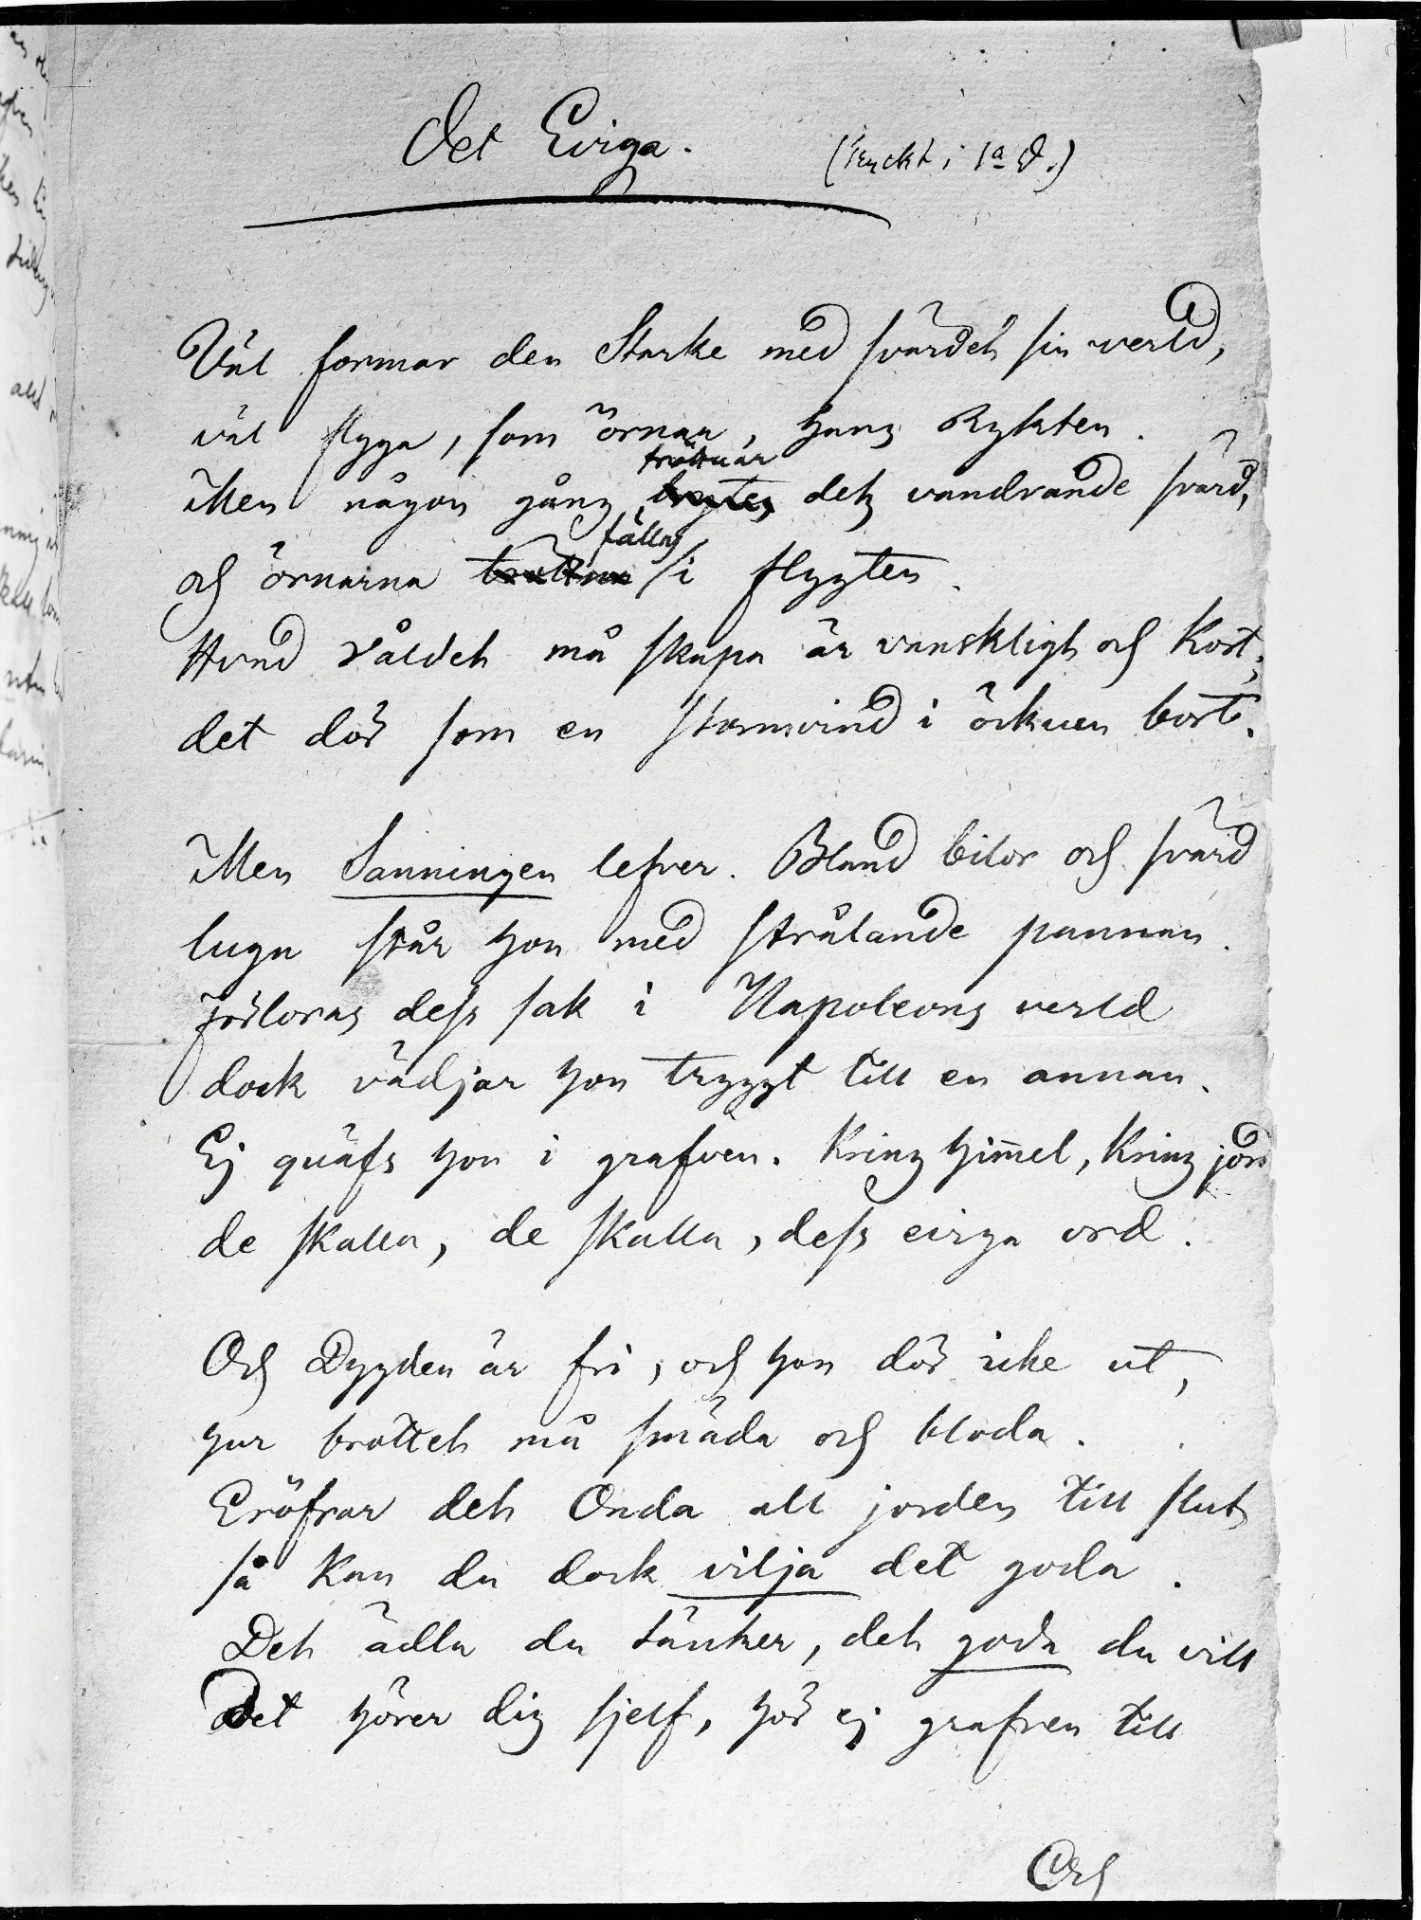 Det Eviga.
(tryckt i 1a D.)
Väl formar den Starke med svärdet sin verld,
väl flyga, som örnar, hans Rykten.
tröttnar
Men någon gång brytes dets vandrande svärd,
fällas
och örnarna tröttna i flygten.
Hvad våldet må skapa är vanskligt och Kort,
det dör som en stormvind i öcknen bort.
Men Sanningen lefver. Bland bilor och svärd
lugn står hon med strålande pannan.
Förloras dess sak i Napoleons verld
dock vädjar hon tryggt till en annan.
Ej quäfs hon i grafven. Kring him̄el, Kring jord
de skalla, de skalla, dess eviga ord.
Och Dygden är fri, och hon dör icke ut,
hur brottet må smäda och bloda.
Eröfrar det Onda all jorden till slut
så Kan du dock vilja det goda.
Det ädla du tänker, det goda du vill
Det hörer dig sjelf, hör ej grafven till
Och